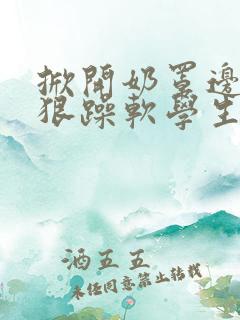 掀開奶罩邊
狠躁軟學生
酒五五
未任同意禁止转载